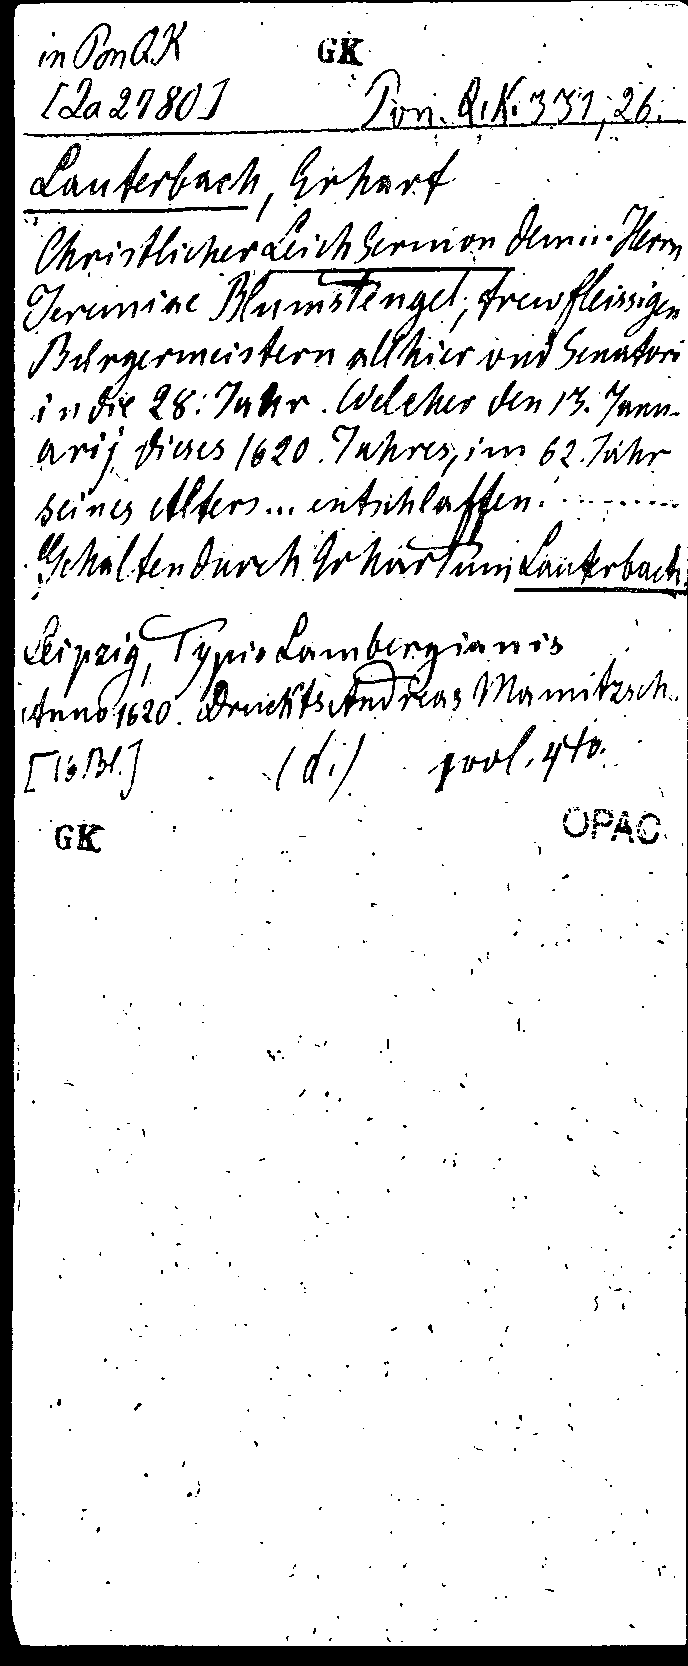 in Pon QK GK
[Za 2780] Pon. Q.K. 331, 26.
Lauterbach, Erhart
Christlicher Leich Sermon dem... Herrn
Jeremiae Blumstengel, trewfleissigen
Bürgermeistern allhier vnd Senatori
in die 28. Jahr. Welcher den 13. Janu-
arij dieses 1620. Jahres, im 62. Jahr
seines Alters... entschlaffen.
Gehalten durch Erhartum Lauterbach
Leipzig, Typis Lambergianis
Anno 1620. Druckts Andreas Mamitzsch.
[16 Bl.] (d.) 4to.
GK OPAC